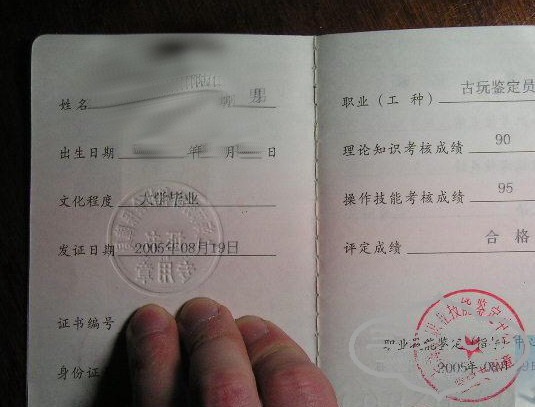 姓名 男
出生日期 年 月 日
文化程度 大学毕业
发证日期 2005年08月19日
证书编号
身份证
专用章
职业（工 种） 古玩鉴定员
理论知识考核成绩 90
操作技能考核成绩 95
评定成绩 合 格
职业技能鉴定 指导中
2005年 08月 9日